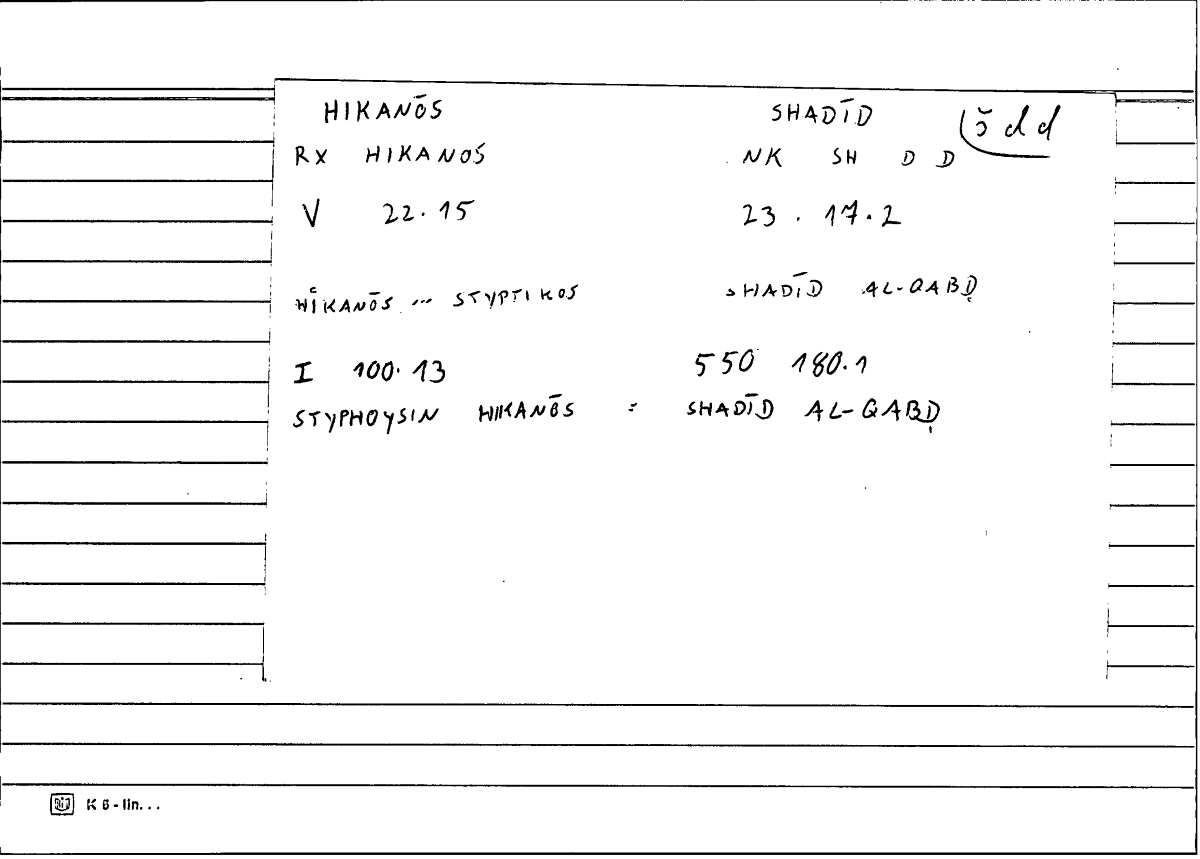 HIKANŌS SHADĪD šdd
RX HIKANOS NK SH D D
V 22.15 23.17.2
HIKANŌS ... STYPTIKOS SHADĪD AL-QABḌ
I 100.13 550 180.1
STYPHOYSIN HIKANŌS = SHADĪD AL-QABḌ
K 6 - lin...